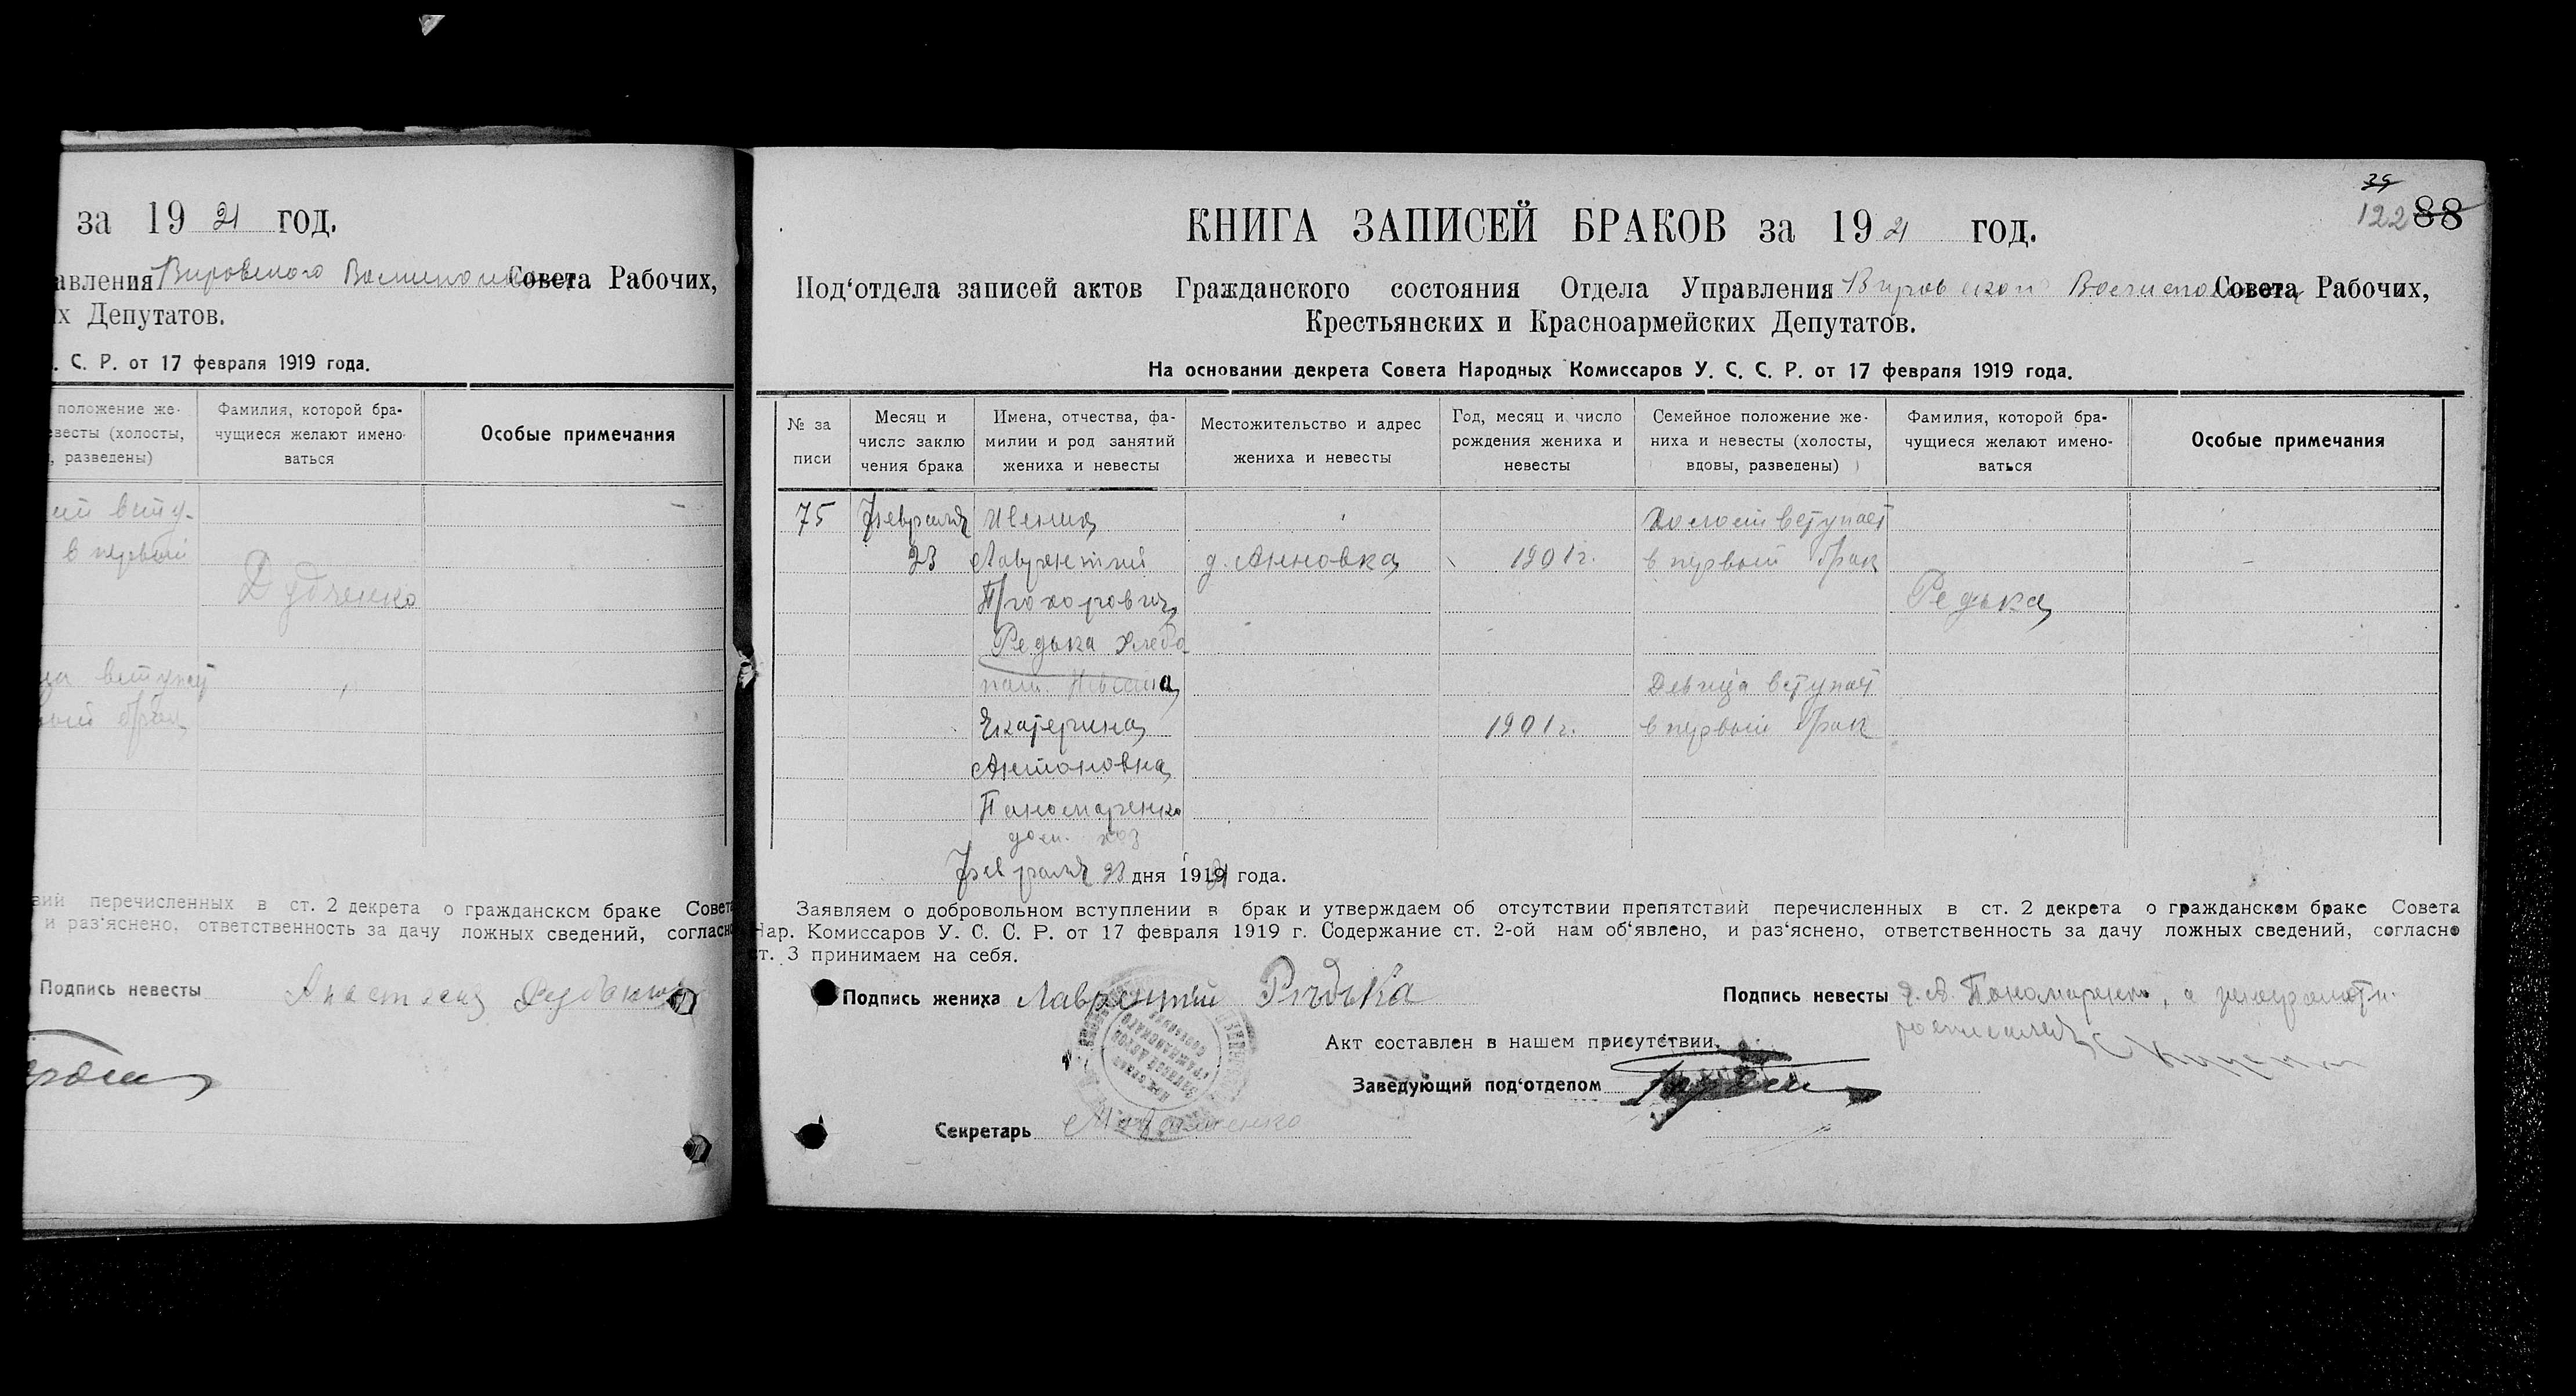 за 19 21 год.
авления Вировского Совета Рабочих,
х Депутатов.
. С. Р. от 17 февраля 1919 года.
положение же-
весты (холосты,
, разведены)
Фамилия, которой бра-
чущиеся желают имено-
ваться
Особые примечания
ий всту-
в первый
Дудченко
ца вступает
вый брак
вий перечисленных в ст. 2 декрета о гражданском браке Совета
и раз‘яснено, ответственность за дачу ложных сведений, согласно
Подпись невесты
39
122 88
КНИГА ЗАПИСЕЙ БРАКОВ за 19 21 год.
Под‘отдела записей актов Гражданского состояния Отдела Управления Вировского Совета Рабочих,
Крестьянских и Красноармейских Депутатов.
На основании декрета Совета Народных Комиссаров У. С. С. Р. от 17 февраля 1919 года.
№ за
писи
Месяц и
число заклю
чения брака
Имена, отчества, фа-
милии и род занятий
жениха и невесты
Местожительство и адрес
жениха и невесты
Год, месяц и число
рождения жениха и
невесты
Семейное положение же-
ниха и невесты (холосты,
вдовы, разведены)
Фамилия, которой бра-
чущиеся желают имено-
ваться
Особые примечания
75 Февраля Жених Холост вступает
23 Лаврентий д. Анновка 1901 г. в первый брак
Прохорович Редька
Редька хлебо
паш. Невеста Девица вступает
Екатерина 1901 г. в первый брак
Антоновна
Пономаренко
дом. хоз
Февраля 23 дня 1921 года.
Заявляем о добровольном вступлении в брак и утверждаем об отсутствии препятствий перечисленных в ст. 2 декрета о гражданском браке Совета
Нар. Комиссаров У. С. С. Р. от 17 февраля 1919 г. Содержание ст. 2-ой нам об‘явлено, и раз‘яснено, ответственность за дачу ложных сведений, согласно
ст. 3 принимаем на себя.
Подпись жениха Лаврентий Редька
Подпись невесты Пономаренко, а
Акт составлен в нашем присутствии.
Заведующий под‘отделом
Секретарь